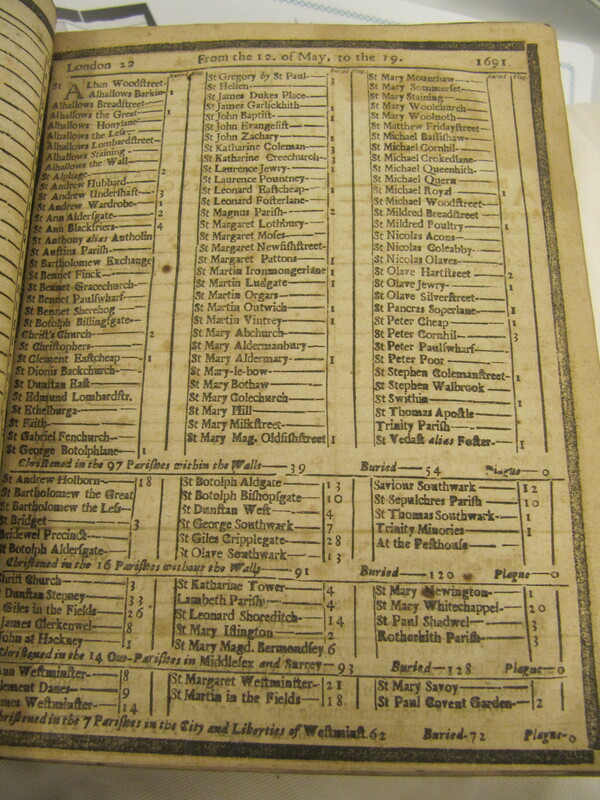 London 22 From the 12. of May, to the 19. 1691.
St Alban Woodſtreet-
Alhallows Barkin- 1
Alhallows Breadſtreet-
Alhallows the Great- 1
Alhallows Honylane-
Alhallows the Leſs-
Alhallows Lombardſtreet-
Alhallows Staining-
Alhallows the Wall-
St Alphage- 2
St Andrew Hubbard-
St Andrew Underſhaft- 3
St Andrew Wardrobe- 1
St Ann Alderſgate- 2
St Ann Blackfriers- 4
St Anthony alias Antholin
St Auſtins Pariſh-
St Bartholomew Exchange
St Bennet Finck-
St Bennet Gracechurch-
St Bennet Paulſwharf-
St Bennet Sherehog-
St Botolph Billingſgate-
Chriſt's Church- 2
St Chriſtophers-
St Clement Eaſtcheap- 1
St Dionis Backchurch-
St Dunſtan Eaſt-
St Edmund Lombardſtr.
St Ethelburga-
St Faith-
St Gabriel Fenchurch-
St George Botolphlane- 1
Buried Plag.
St Gregory by St Paul-
St Hellen- 1
St James Dukes Place-
St James Garlickhith- 1
St John Baptiſt- 1
St John Evangeliſt-
St John Zachary-
St Katharine Coleman- 3
St Katharine Creechurch- 3
St Laurence Jewry- 1
St Laurence Pountney-
St Leonard Eaſtcheap- 1
St Leonard Foſterlane-
St Magnus Pariſh- 2
St Margaret Lothbury-
St Margaret Moſes-
St Margaret Newfiſhſtreet-
St Margaret Pattons- 1
St Martin Ironmongerlane 1
St Martin Ludgate- 1
St Martin Orgars-
St Martin Outwich- 1
St Martin Vintrey- 1
St Mary Abchurch-
St Mary Aldermanbury-
St Mary Aldermary- 1
St Mary-le-bow-
St Mary Bothaw-
St Mary Colechurch-
St Mary Hill-
St Mary Milkſtreet-
St Mary Mag. Oldfiſhſtreet 1
Buried Plag.
St Mary Mounthaw-
St Mary Sommerſet-
St Mary Staining-
St Mary Woolchurch-
St Mary Woolnoth-
St Matthew Fridayſtreet-
St Michael Baſſiſhaw-
St Michael Cornhil-
St Michael Crokedlane-
St Michael Queenhith-
St Michael Quern-
St Michael Royal- 1
St Michael Woodſtreet-
St Mildred Breadſtreet-
St Mildred Poultry- 1
St Nicolas Acons-
St Nicolas Coleabby-
St Nicolas Olaves-
St Olave Hartſtreet- 2
St Olave Jewry- 1
St Olave Silverſtreet-
St Pancras Soperlane- 1
St Peter Cheap- 1
St Peter Cornhil- 3
St Peter Paulſwharf-
St Peter Poor-
St Stephen Colemanſtreet- 1
St Stephen Walbrook-
St Swithin- 1
St Thomas Apoſtle-
Trinity Pariſh-
St Vedaſt alias Foſter- 1
Buried Plag.
Chriſtened in the 97 Pariſhes within the Walls- 39 Buried- 54 Plague- 0
St Andrew Holborn- 18
St Bartholomew the Great
St Bartholomew the Leſs-
St Bridget- 3
Bridewel Precinct-
St Botolph Alderſgate-
St Botolph Aldgate- 13
St Botolph Biſhopſgate- 10
St Dunſtan Weſt- 4
St George Southwark- 7
St Giles Cripplegate- 28
St Olave Southwark- 13
Saviour Southwark- 12
St Sepulchres Pariſh- 10
St Thomas Southwark- 1
Trinity Minories- 1
At the Peſthouſe-
Chriſtened in the 16 Pariſhes without the Walls- 91 Buried- 120 Plague- 0
Chriſt Church- 3
Dunſtan Stepney- 33
Giles in the Fields- 26
James Clerkenwel- 8
John at Hackney- 1
St Katharine Tower- 4
Lambeth Pariſh- 4
St Leonard Shoreditch- 14
St Mary Iſlington- 2
St Mary Magd. Bermondſey 6
St Mary Newington- 1
St Mary Whitechappel- 20
St Paul Shadwel- 3
Rotherhith Pariſh- 3
Chriſtened in the 14 Out-Pariſhes in Middleſex and Surrey- 93 Buried- 128 Plague- 0
Ann Weſtminſter- 8
Clement Danes- 9
James Weſtminſter- 14
St Margaret Weſtminſter- 21
St Martin in the Fields- 18
St Mary Savoy-
St Paul Covent Garden- 2
Chriſtened in the 7 Pariſhes in the City and Liberties of Weſtminſt. 62 Buried- 72 Plague- 0